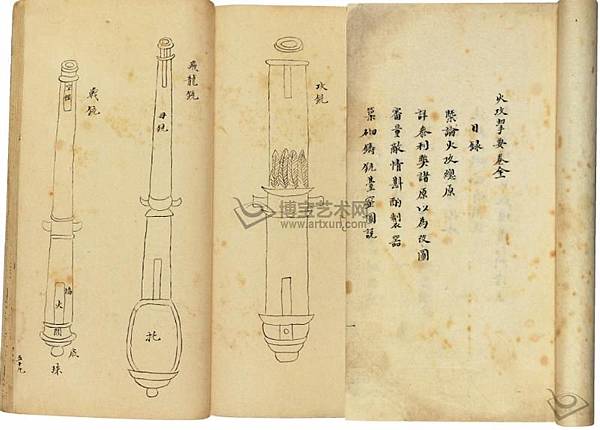 火攻挈要卷全
目錄
槩論火攻總原
詳叅利獘諸原以為改圖
審量敵情斟酌製器
築砌鑄銃臺窰圖說
攻銃
飛龍銃
母銃
托
戰銃
火
門
底
珠
五十九
博宝艺术网
www.artxun.com